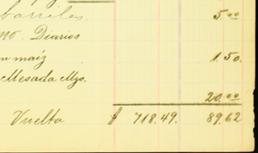 barriles 5.00
no. Diarios
n maiz 1.50.
Mesada Mzo.
20.00
Vuelta $ 718.49. 89.62